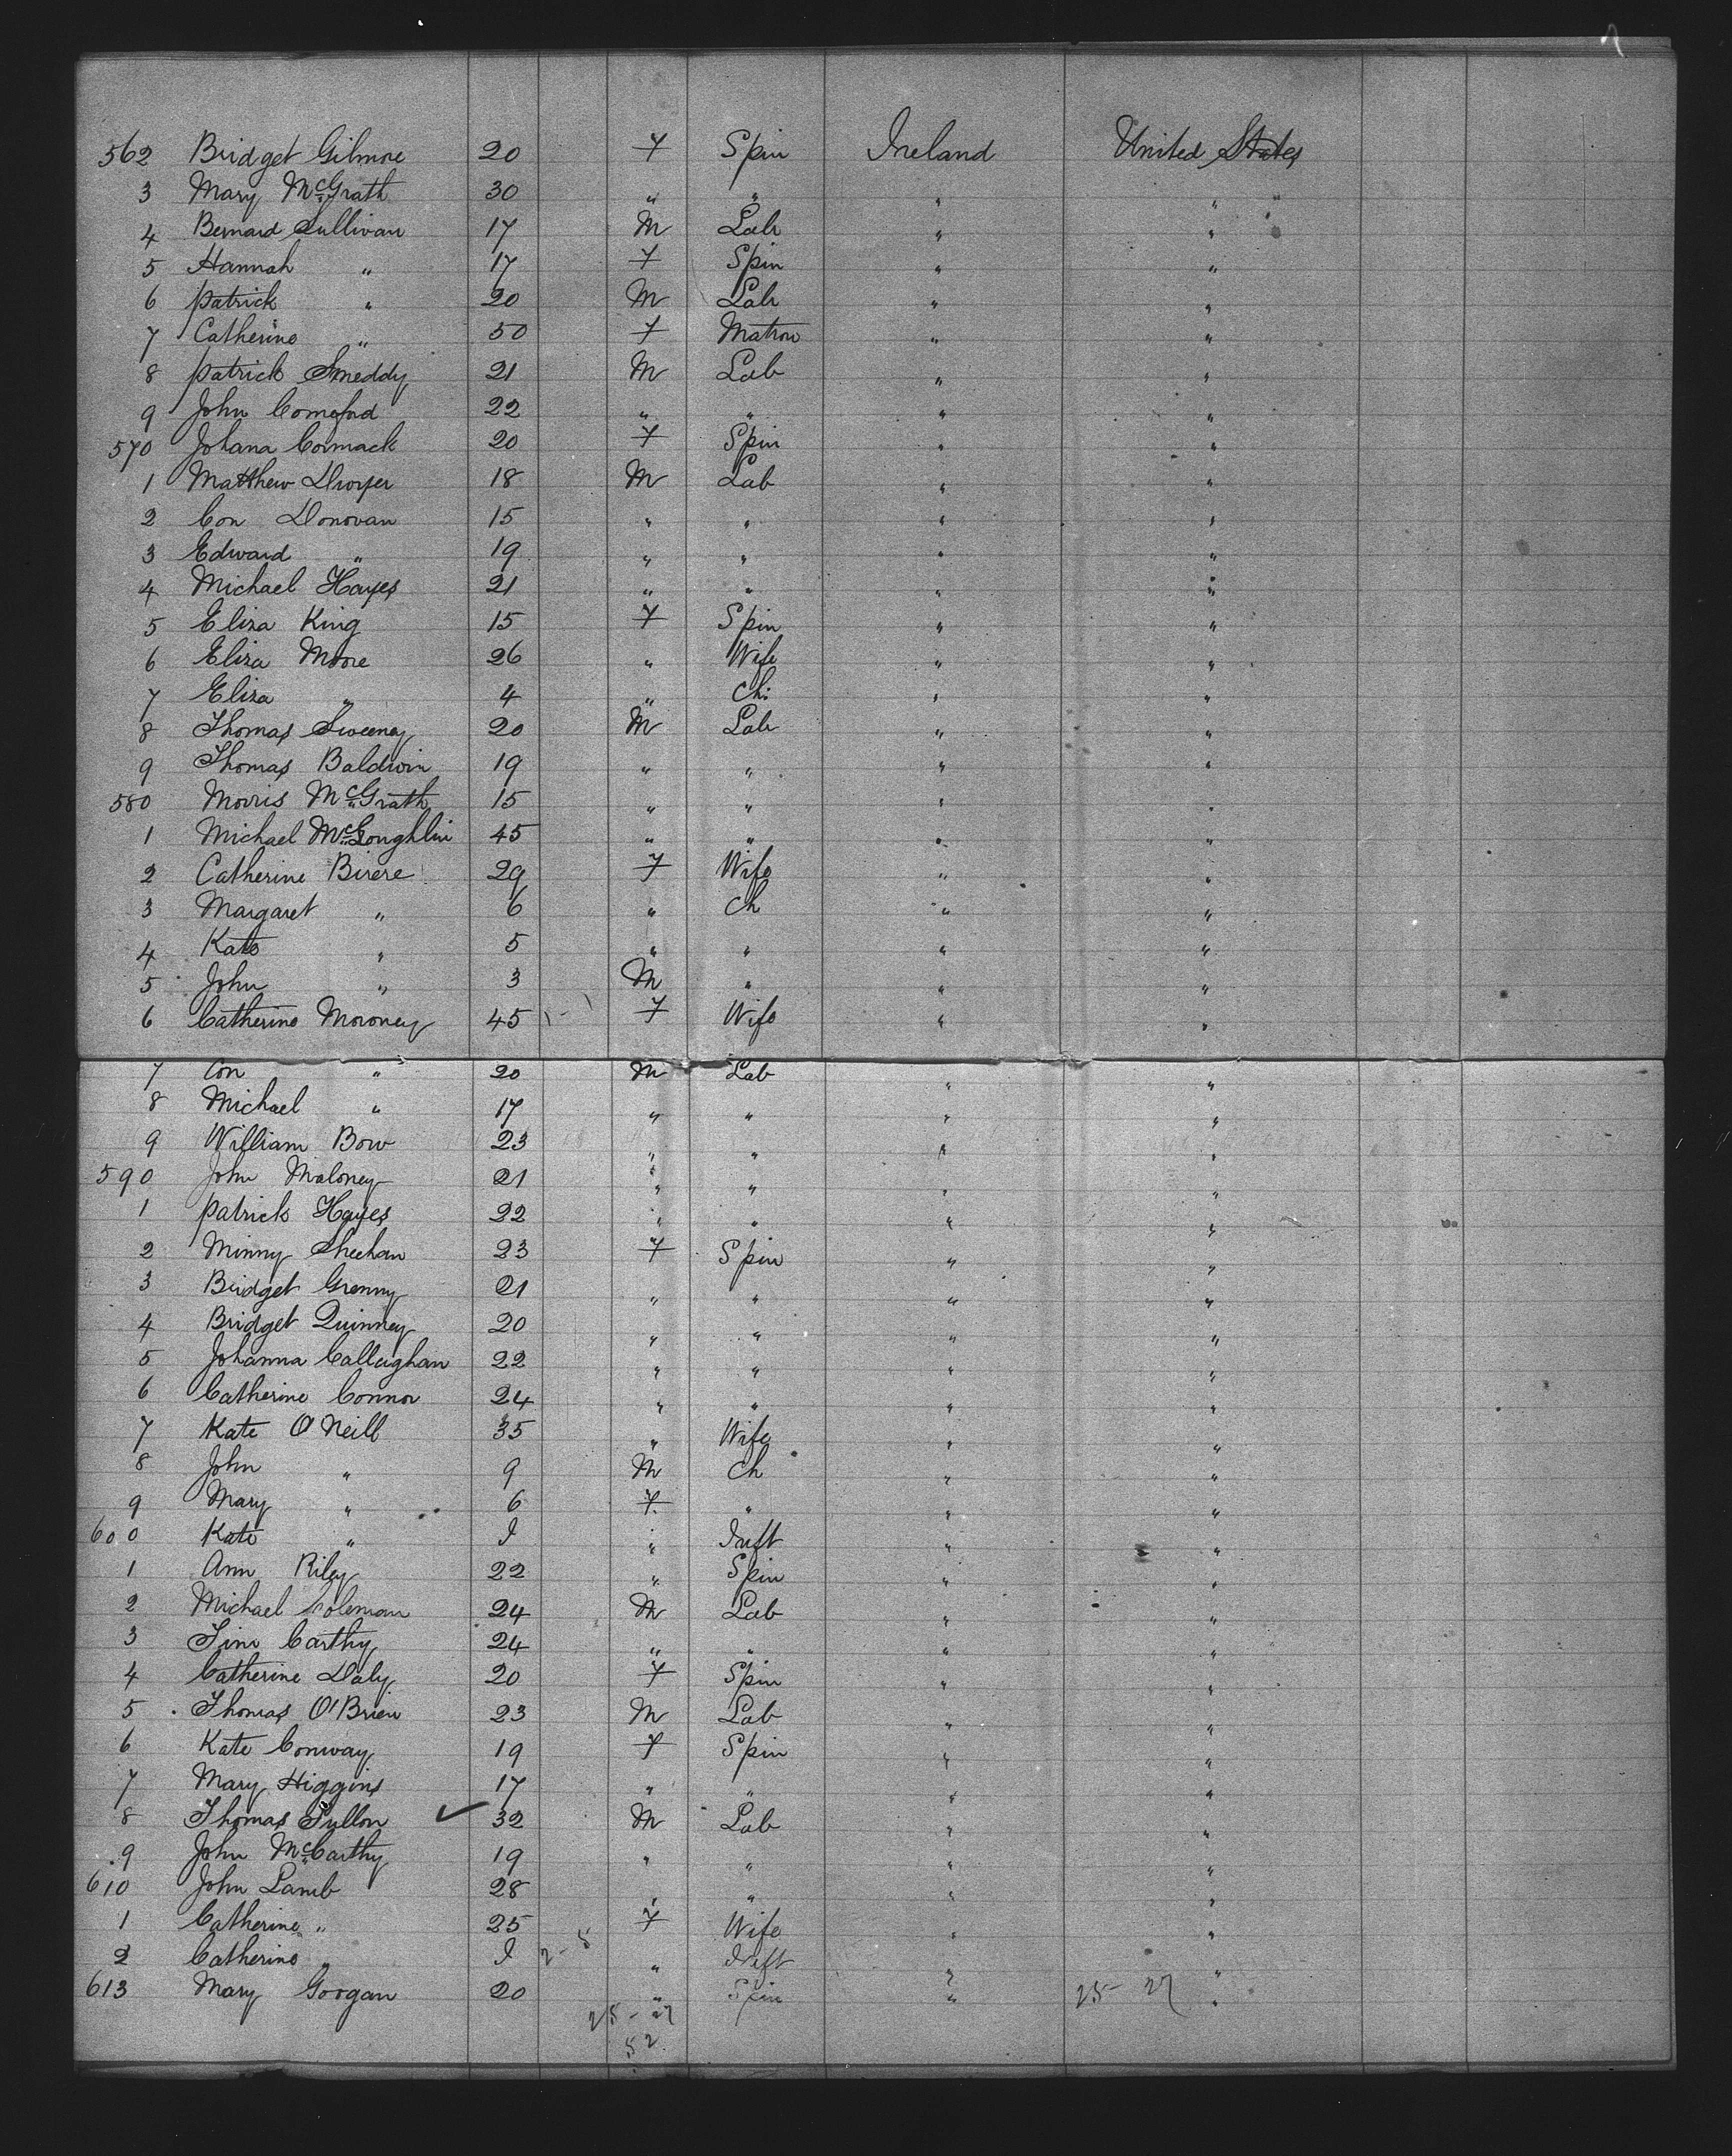 562 Bridget Gilmore 20 F Spin Ireland United States
3 Mary McGrath 30 " " " " "
4 Bernard Sullivan 17 M Lab " "
5 Hannah " 17 F Spin " "
6 Patrick " 20 M Lab " "
7 Catherine " 50 F Matron " "
8 Patrick Smeddy 21 M Lab " "
9 John Comeford 22 " " " "
570 Johana Cormack 20 F Spin " "
1 Matthew Dwyer 18 M Lab " "
2 Con Donovan 15 " " " "
3 Edward " 19 " " " "
4 Michael Hayes 21 " " " "
5 Eliza King 15 F Spin " "
6 Eliza Moore 26 " Wife " "
7 Eliza " 4 " Ch: " "
8 Thomas Sweeney 20 M Lab " "
9 Thomas Baldwin 19 " " " "
580 Morris McGrath 15 " " " "
1 Michael McLoughlin 45 " " " "
2 Catherine Birere 29 F Wife " "
3 Margaret " 6 " Ch " "
4 Kate " 5 " " " "
5 John " 3 M " " "
6 Catherine Moroney 45 F Wife " "
7 Con " 20 M Lab " "
8 Michael " 17 " " " "
9 William Bow 23 " " " "
590 John Maloney 21 " " " "
1 Patrick Hayes 22 " " " "
2 Minny Sheehan 23 F Spin " "
3 Bridget Grenny 21 " " " "
4 Bridget Quinney 20 " " " "
5 Johanna Callaighan 22 " " " "
6 Catherine Connor 24 " " " "
7 Kate O'Neill 35 " Wife " "
8 John " 9 M Ch " "
9 Mary " 6 F " " "
600 Kate " I " Inft " "
1 Ann Riley 22 " Spin " "
2 Michael Coleman 24 M Lab " "
3 Tim Carthy 24 " " " "
4 Catherine Daly 20 F Spin " "
5 Thomas O'Brien 23 M Lab " "
6 Kate Conway 19 F Spin " "
7 Mary Higgins 17 " " " "
8 Thomas ✓ 32 M Lab " "
9 John McCarthy 19 " " " "
610 John Lamb 28 " " " "
1 Catherine " 25 F Wife " "
2 Catherine " I 2-5 " Inft " "
613 Mary Googan 20 " Spin " 25-27 "
25-27
52